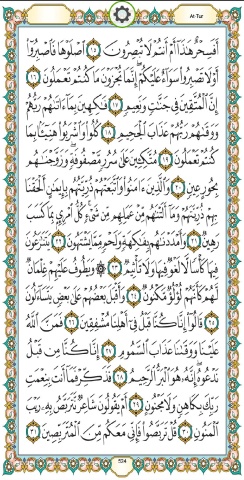 At-Tur
أَفَسِحْرٌ هَٰذَا أَمْ أَنتُمْ لَا تُبْصِرُونَ ١٥ ٱصْلَوْهَا فَٱصْبِرُوٓا۟
أَوْ لَا تَصْبِرُوا۟ سَوَآءٌ عَلَيْكُمْ ۖ إِنَّمَا تُجْزَوْنَ مَا كُنتُمْ تَعْمَلُونَ ١٦
إِنَّ ٱلْمُتَّقِينَ فِى جَنَّٰتٍ وَنَعِيمٍ ١٧ فَٰكِهِينَ بِمَآ ءَاتَىٰهُمْ رَبُّهُمْ
وَوَقَىٰهُمْ رَبُّهُمْ عَذَابَ ٱلْجَحِيمِ ١٨ كُلُوا۟ وَٱشْرَبُوا۟ هَنِيٓـًٔۢا بِمَا
كُنتُمْ تَعْمَلُونَ ١٩ مُتَّكِـِٔينَ عَلَىٰ سُرُرٍ مَّصْفُوفَةٍ ۖ وَزَوَّجْنَٰهُم
بِحُورٍ عِينٍ ٢٠ وَٱلَّذِينَ ءَامَنُوا۟ وَٱتَّبَعَتْهُمْ ذُرِّيَّتُهُم بِإِيمَٰنٍ أَلْحَقْنَا
بِهِمْ ذُرِّيَّتَهُمْ وَمَآ أَلَتْنَٰهُم مِّنْ عَمَلِهِم مِّن شَىْءٍ ۚ كُلُّ ٱمْرِئٍۭ بِمَا كَسَبَ
رَهِينٌ ٢١ وَأَمْدَدْنَٰهُم بِفَٰكِهَةٍ وَلَحْمٍ مِّمَّا يَشْتَهُونَ ٢٢ يَتَنَٰزَعُونَ
فِيهَا كَأْسًا لَّا لَغْوٌ فِيهَا وَلَا تَأْثِيمٌ ٢٣ ۞ وَيَطُوفُ عَلَيْهِمْ غِلْمَانٌ
لَّهُمْ كَأَنَّهُمْ لُؤْلُؤٌ مَّكْنُونٌ ٢٤ وَأَقْبَلَ بَعْضُهُمْ عَلَىٰ بَعْضٍ يَتَسَآءَلُونَ
٢٥ قَالُوٓا۟ إِنَّا كُنَّا قَبْلُ فِىٓ أَهْلِنَا مُشْفِقِينَ ٢٦ فَمَنَّ ٱللَّهُ
عَلَيْنَا وَوَقَىٰنَا عَذَابَ ٱلسَّمُومِ ٢٧ إِنَّا كُنَّا مِن قَبْلُ
نَدْعُوهُ ۖ إِنَّهُۥ هُوَ ٱلْبَرُّ ٱلرَّحِيمُ ٢٨ فَذَكِّرْ فَمَآ أَنتَ بِنِعْمَتِ
رَبِّكَ بِكَاهِنٍ وَلَا مَجْنُونٍ ٢٩ أَمْ يَقُولُونَ شَاعِرٌ نَّتَرَبَّصُ بِهِۦ رَيْبَ
ٱلْمَنُونِ ٣٠ قُلْ تَرَبَّصُوا۟ فَإِنِّى مَعَكُم مِّنَ ٱلْمُتَرَبِّصِينَ ٣١
524